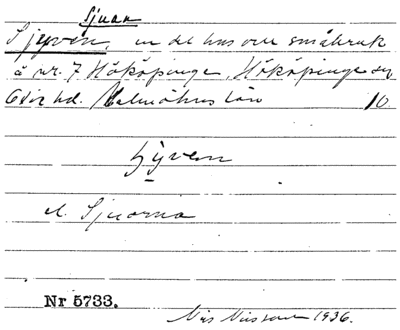 Sjuan
Sjyven, en del hus och småbruk
å nr. 7 Hököpinge, Hököpinge sn
Oxie hd. Malmöhus län 10
sjyven
el. Sjuorna
Nr 5733.
Nils Nilsson 1936.